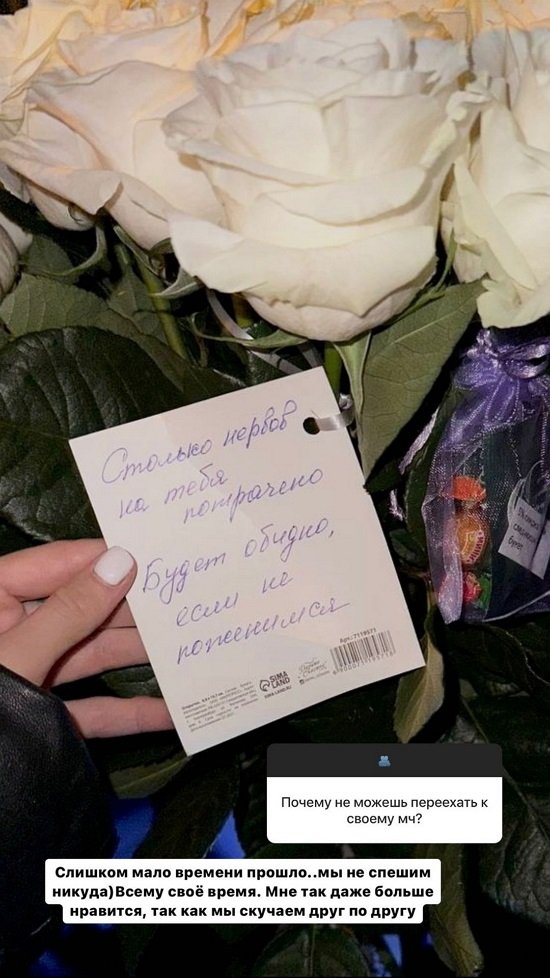 Столько нервов
на тебя
потрачено
Будет обидно,
если не
поженимся
Арт.: 7119571
SIMA
LAND
SIMA-LAND.RU
Почему не можешь переехать к
своему мч?
Слишком мало времени прошло..мы не спешим
никуда)Всему своё время. Мне так даже больше
нравится, так как мы скучаем друг по другу